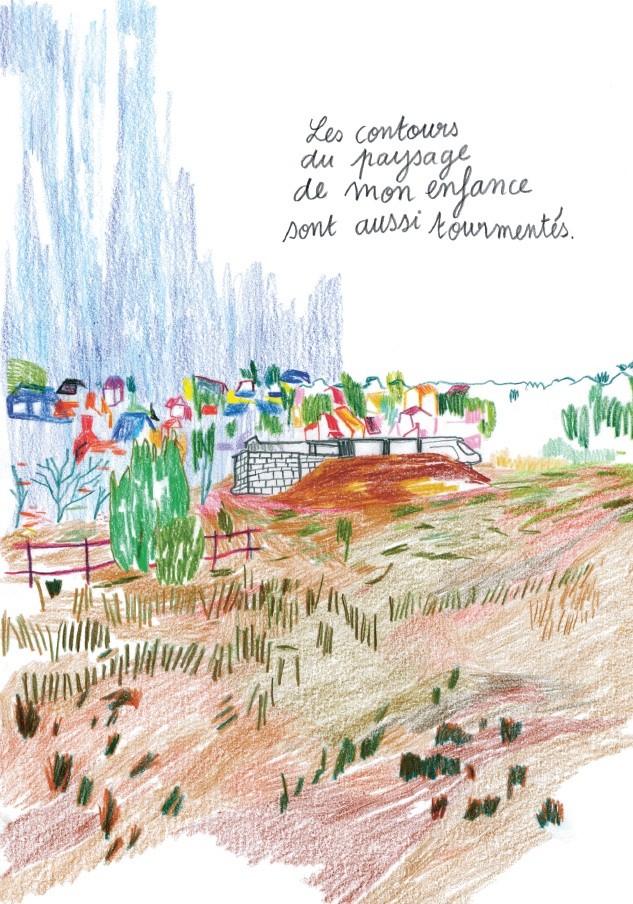 Les contours
du paysage
de mon enfance
sont aussi tourmentés.